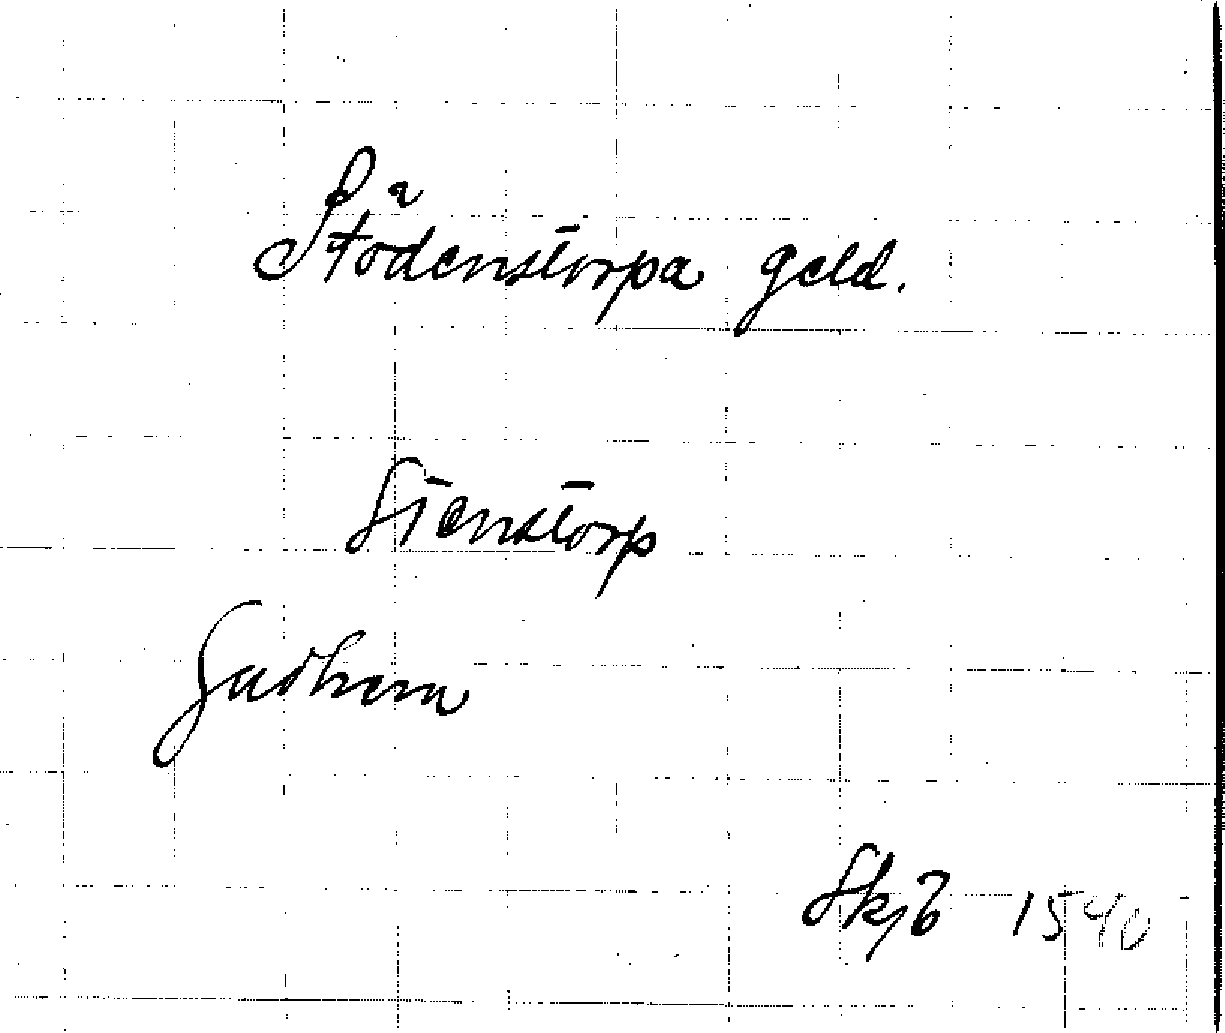 Stödenstorpa geld.
Stenstorp
Gudhem
Skjb 1540